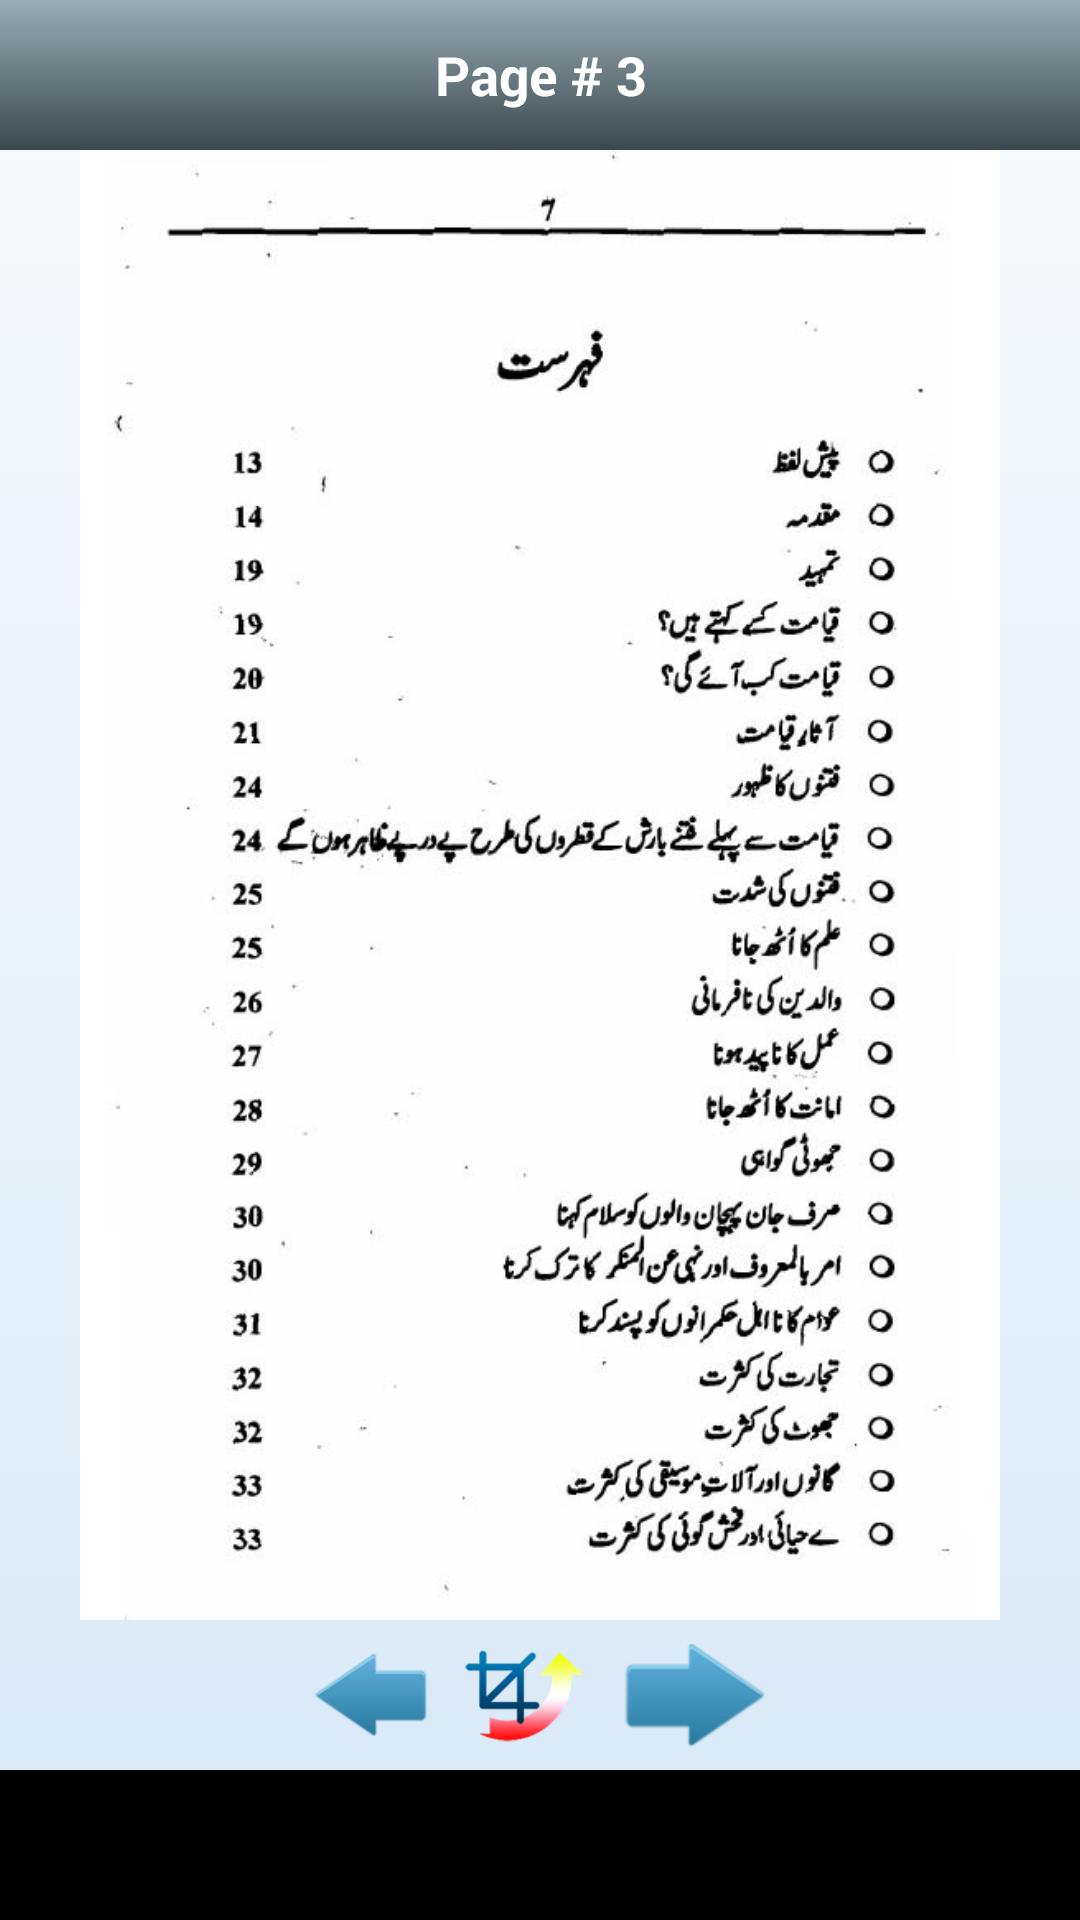 Page # 3
7
فہرست
پیش لفظ 13
مقدمہ 14
تمہید 19
قیامت کسے کہتے ہیں؟ 19
قیامت کب آئے گی؟ 20
آثارِ قیامت 21
فتنوں کا ظہور 24
قیامت سے پہلے فتنے بارش کے قطروں کی طرح پے در پے ظاہر ہوں گے 24
فتنوں کی شدت 25
علم کا اُٹھ جانا 25
والدین کی نافرمانی 26
عمل کا ناپید ہونا 27
امانت کا اُٹھ جانا 28
جھوٹی گواہی 29
صرف جان پہچان والوں کو سلام کہنا 30
امر بالمعروف اور نہی عن المنکر کا ترک کرنا 30
عوام کا نااہل حکمرانوں کو پسند کرنا 31
تجارت کی کثرت 32
جھوٹ کی کثرت 32
گانوں اور آلاتِ موسیقی کی کثرت 33
بے حیائی اور فحش گوئی کی کثرت 33